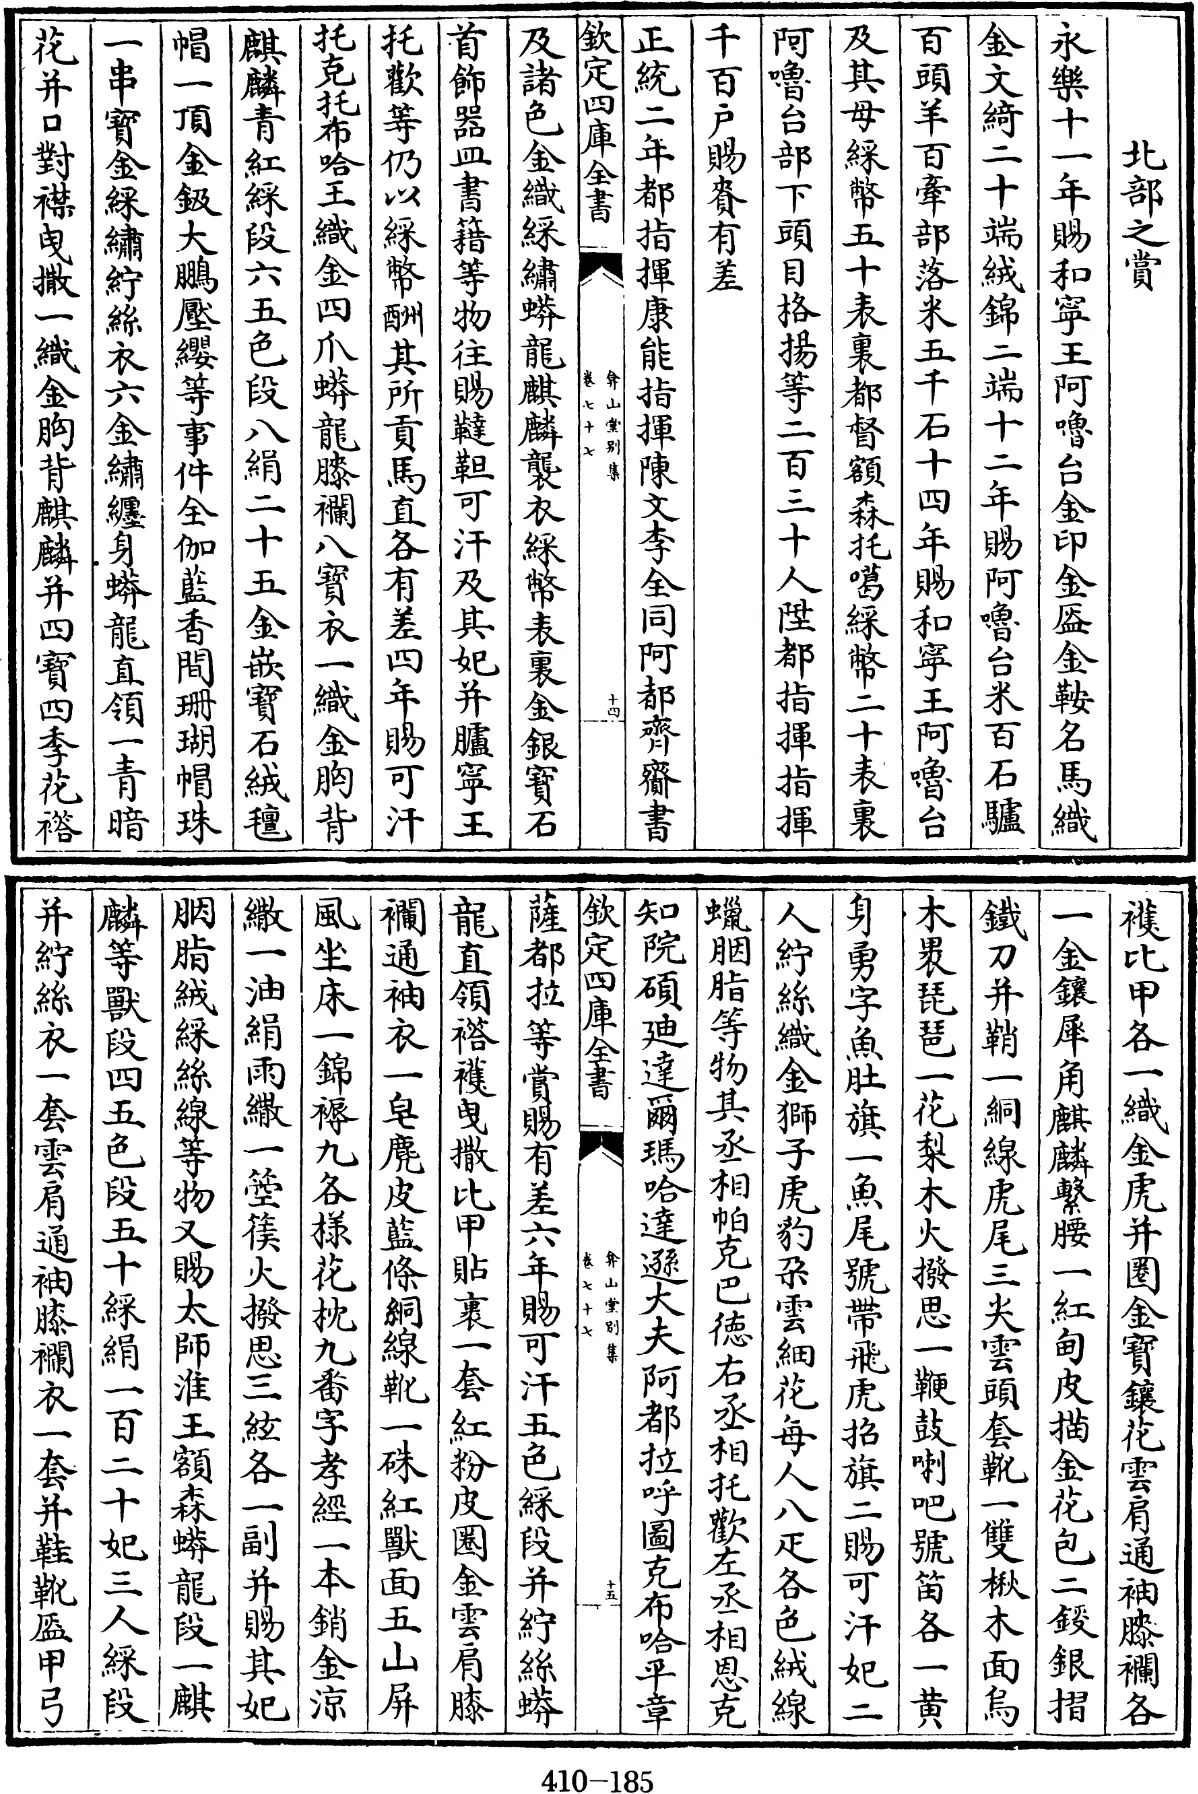 北部之賞
永樂十一年賜和寧王阿嚕台金印金盔金鞍名馬織
金文綺二十端絨錦二端十二年賜阿嚕台米百石驢
百頭羊百牽部落米五千石十四年賜和寧王阿嚕台
及其母綵幣五十表裏都督額森托噶綵幣二十表裏
阿嚕台部下頭目格揚等二百三十人陞都指揮指揮
千百戶賜賚有差
正統二年都指揮康能指揮陳文李全同阿都齊齎書
欽定四庫全書
弇山堂别集
卷七十七
十四
及諸色金織綵繡蟒龍麒麟襲衣綵幣表裏金銀寶石
首飾器皿書籍等物往賜韃靼可汗及其妃并臚寧王
托歡等仍以綵幣酬其所貢馬直各有差四年賜可汗
托克托布哈王織金四爪蟒龍膝襴八寶衣一織金胸背
麒麟青紅綵段六五色段八絹二十五金嵌寶石絨氊
帽一頂金鈒大鵬壓纓等事件全伽藍香間珊瑚帽珠
一串寶金綵繡紵絲衣六金繡纏身蟒龍直領一青暗
花并口對襟曳撒一織金胸背麒麟并四寶四季花褡
𧞤比甲各一織金虎并圈金寶鑲花雲肩通袖膝襴各
一金鑲犀角麒麟繫腰一紅甸皮描金花包二鋄銀摺
鐵刀并鞘一絧線虎尾三尖雲頭套靴一雙楸木面烏
木裏琵琶一花梨木火撥思一鞭鼓喇叭號笛各一黄
身勇字魚肚旗一魚尾號帶飛虎招旗二賜可汗妃二
人紵絲織金獅子虎豹朶雲細花每人八疋各色絨線
蠟胭脂等物其丞相帕克巴德右丞相托歡左丞相恩克
知院碩迪達爾瑪哈達遜大夫阿都拉呼圖克布哈平章
欽定四庫全書
弇山堂别集
卷七十七
十五
薩都拉等賞賜有差六年賜可汗五色綵段并紵絲蟒
龍直領褡𧞤曳撒比甲貼裏一套紅粉皮圈金雲肩膝
襴通袖衣一皂麂皮藍條絧線靴一硃紅獸面五山屏
風坐床一錦褥九各様花枕九番字孝經一本銷金涼
繖一油絹雨繖一箜篌火撥思三絃各一副并賜其妃
胭脂絨綵絲線等物又賜太師淮王額森蟒龍段一麒
麟等獸段四五色段五十綵絹一百二十妃三人綵段
并紵絲衣一套雲肩通袖膝襴衣一套并鞋靴盔甲弓
410-185